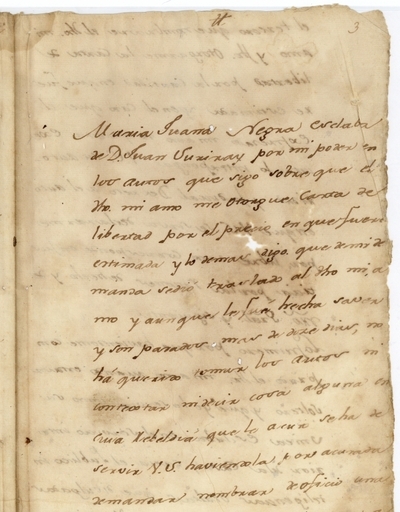 3
Maria Juana Negra esclaba
de D. Juan por mi poder en
los autos que sigo sobre que el
dho. mi amo me otorgue Carta de
libertad por el precio en que fuere
estimada y lo demas digo. que de mi de
manda se dio traslado al dho mi, a
mo y aunque le fue hecha saver
y son pasados mas de dias, no
há querido tomar los autos ni
contestar ni decir cosa alguna en
cuia Rebeldia que le acuso se ha de
servir V.S. haviendola por acusada
demandar nombrar de oficio una